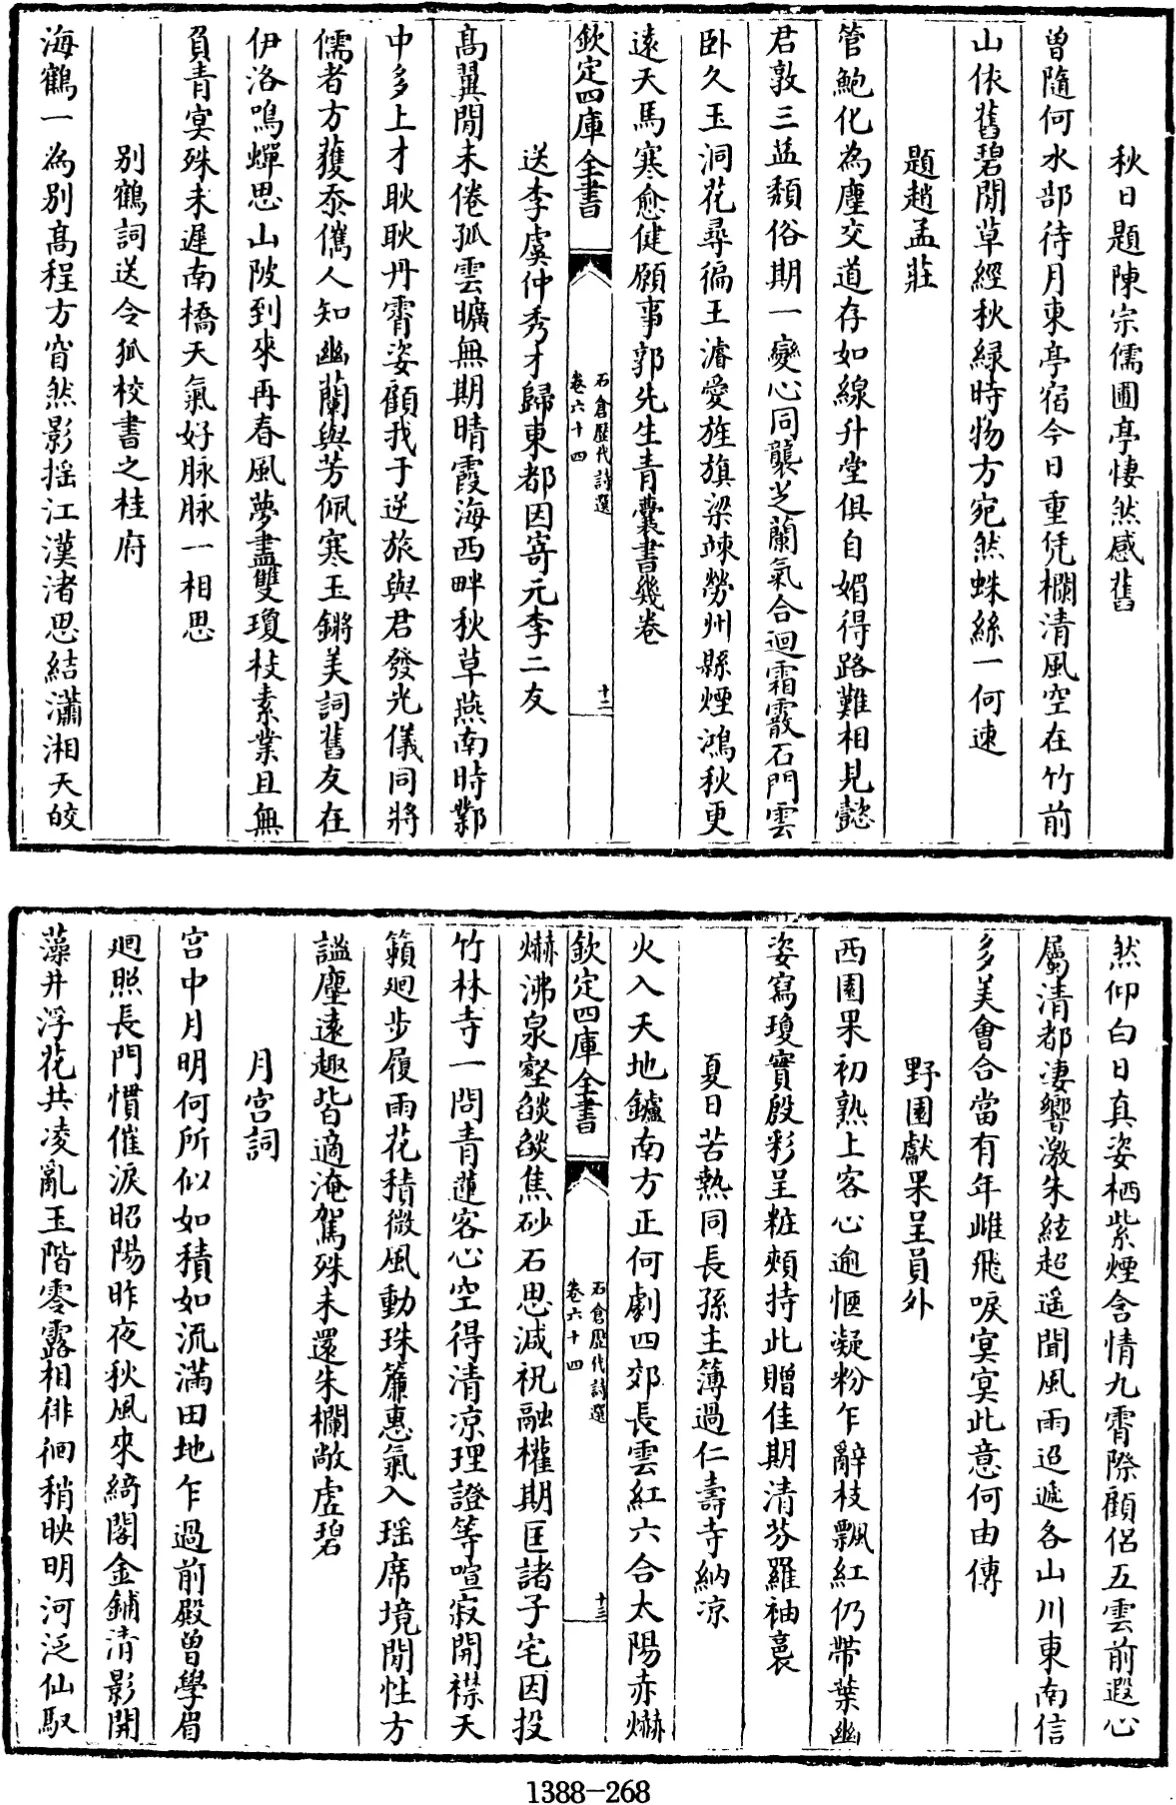 秋日題陳宗儒圃亭悽然感舊
曾隨何水部待月東亭宿今日重凭欄清風空在竹前
山依舊碧閒草經秋緑時物方宛然蛛絲一何速
題趙孟莊
管鮑化為塵交道存如線升堂俱自媚得路難相見懿
君敦三益頽俗期一變心同襲芝蘭氣合迴霜霰石門雲
卧久玉洞花尋徧王濬愛旌旗梁竦勞州縣煙鴻秋更
遠天馬寒愈健願事郭先生青囊書幾卷
欽定四庫全書
石倉歷代詩選
卷六十四
十二
送李虞仲秀才歸東都因寄元李二友
髙翼閒未倦孤雲曠無期晴霞海西畔秋草燕南時鄴
中多上才耿耿丹霄姿顧我于逆旅與君發光儀同將
儒者方獲忝儁人知幽蘭與芳佩寒玉鏘美詞舊友在
伊洛鳴蟬思山陂到來再春風夢盡雙瓊枝素業且無
負青冥殊未遲南橋天氣好脉脉一相思
别鶴詞送令狐校書之桂府
海鶴一為别髙程方窅然影搖江漢渚思結瀟湘天皎
然仰白日真姿栖紫煙含情九霄際顧侣五雲前遐心
屬清都凄響激朱絃超遥聞風雨迢遞各山川東南信
多美會合當有年雌飛唳冥冥此意何由傳
野園獻果呈員外
西園果初熟上客心逾愜凝粉乍辭枝飄紅仍帶葉幽
姿寫瓊實殷彩呈粧頰持此贈佳期清芬羅袖裛
夏日苦熱同長孫主簿過仁壽寺納凉
火入天地鑪南方正何劇四郊長雲紅六合太陽赤爀
欽定四庫全書
石倉歷代詩選
卷六十四
十三
爀沸泉壑燄燄焦砂石思減祝融權期匡諸子宅因投
竹林寺一問青蓮客心空得清凉理證等喧寂開襟天
籟迴步履雨花積微風動珠簾惠氣入瑶席境閒性方
謐塵遠趣皆適淹駕殊未還朱欄敞虛碧
月宫詞
宫中月明何所似如積如流滿田地乍過前殿曽學眉
迴照長門慣催淚昭陽昨夜秋風來綺閣金鋪清影開
藻井浮花共凌亂玉階零露相徘徊稍映明河泛仙馭
1388-268